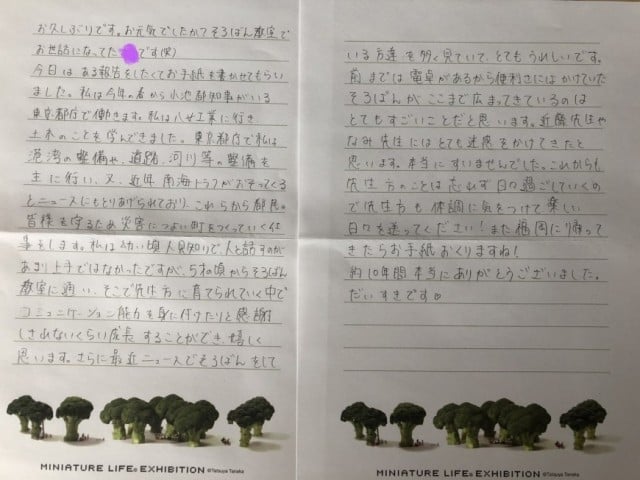 お久しぶりです。お元気でしたか？そろばん教室で
お世話になってた です(笑)
今日は ある報告をしたくてお手紙を書かせてもらい
ました。私は今年の春から小池都知事がいる
東京都庁で働きます。私は八女工業に行き
土木のことを学んできました。東京都庁で私は
港湾の整備や、道路、河川等の整備を
主に行い、又、近年 南海トラフがおそってくる
とニュースにもとりあげられており、これらから都民の
皆様を守るため 災害につよい町をつくっていく仕
事をします。私は幼い頃 人見知りで、人と話すのが
あまり上手ではなかったですが、5才の頃からそろばん
教室に通い、そこで先生方に育てられていく中で
コミュニケーション能力を身に付けたりと感謝
しきれないくらい成長 することができ 嬉しく
思います。さらに最近ニュースでそろばんをして
いる方達を多く見ていて、とてもうれしいです。
前までは電卓があるから便利さにはかけていた
そろばんが ここまで広まってきているのは
とてもすごいことだと思います。近藤先生や
なみ先生にはとても迷惑をかけてきたと
思います。本当に すいませんでした。これからも
先生方のことは忘れず 日々過ごしていくの
で先生方も 体調に気をつけて 楽しい
日々を送ってください！また福岡に帰って
きたらお手紙おくりますね！
約10年間本当にありがとうございました。
だいすきです♡
MINIATURE LIFE EXHIBITION ©Tatsuya Tanaka
MINIATURE LIFE EXHIBITION ©Tatsuya Tanaka